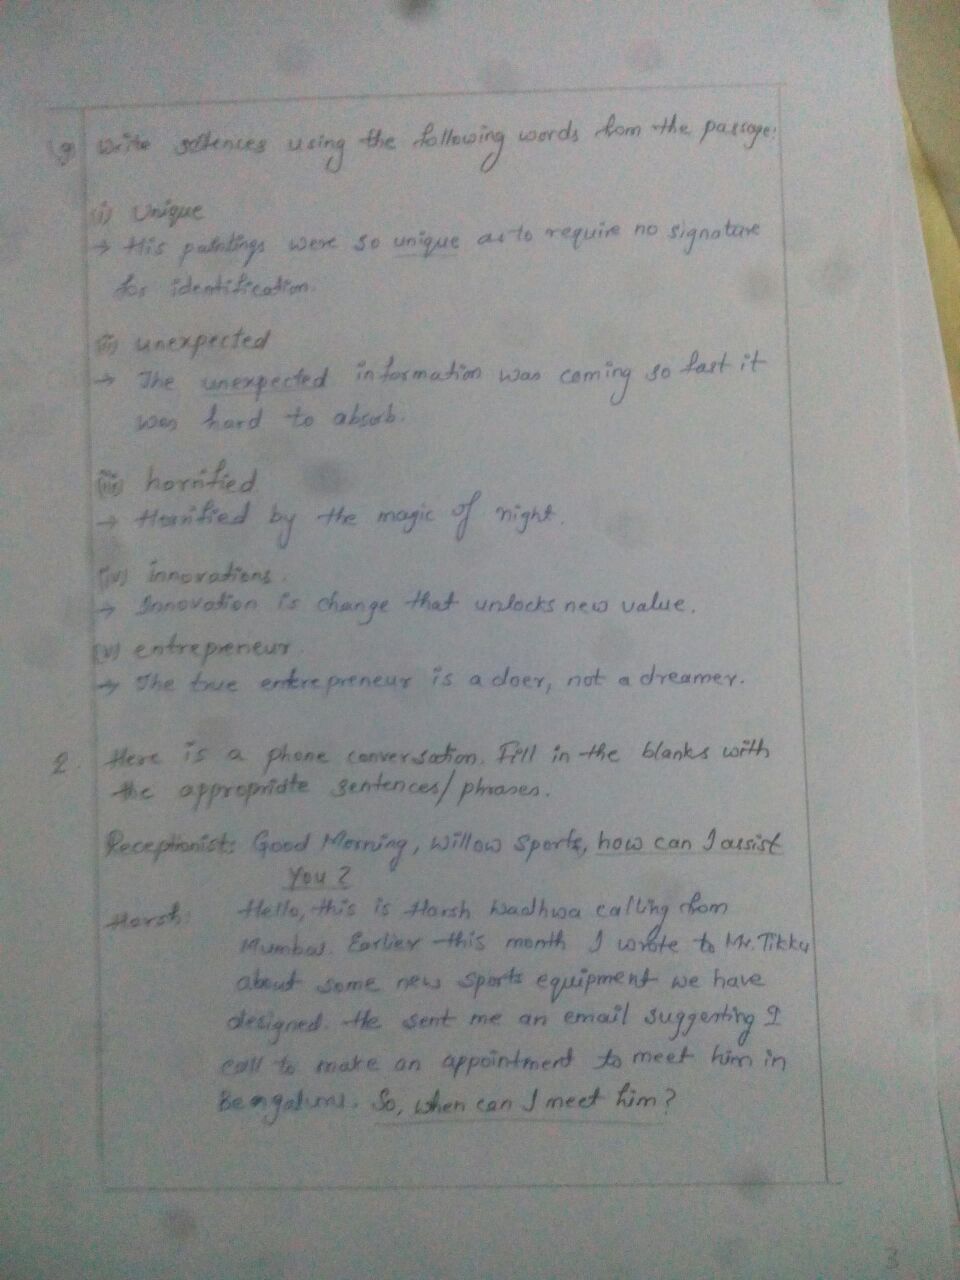 g) Write sentences using the following words from the passage:
(i) Unique
→ His paintings were so unique as to require no signature
for identification.
(ii) unexpected
→ The unexpected information was coming so fast it
was hard to absorb.
(iii) horrified
→ Horrified by the magic of night.
(iv) innovations.
→ Innovation is change that unlocks new value.
(v) entrepreneur.
→ The true entrepreneur is a doer, not a dreamer.
2. Here is a phone conversation. Fill in the blanks with
the appropriate sentences/phrases.
Receptionist: Good Morning, Willow Sports, how can I assist
You?
Harsh: Hello, this is Harsh Wadhwa calling from
Mumbai. Earlier this month I wrote to Mr. Tikku
about some new sports equipment we have
designed. He sent me an email suggesting I
call to make an appointment to meet him in
Bengaluru. So, when can I meet him?
3